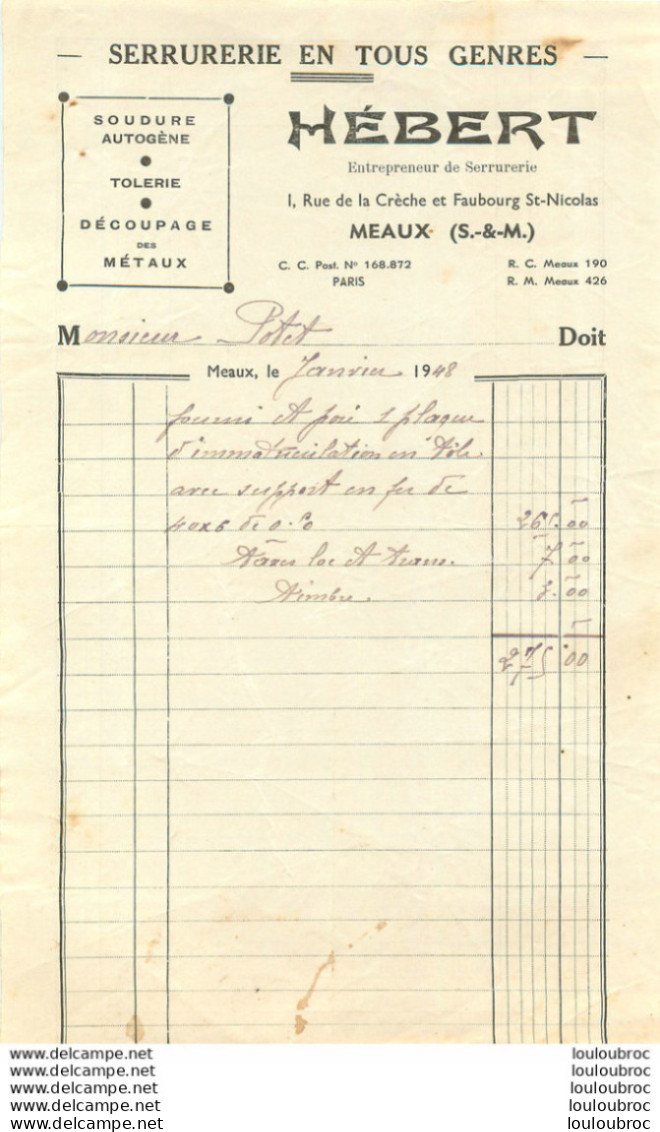 — SERRURERIE EN TOUS GENRES —
SOUDURE
AUTOGÈNE
TOLERIE
DÉCOUPAGE
DES
MÉTAUX
HÉBERT
Entrepreneur de Serrurerie
1, Rue de la Crèche et Faubourg St-Nicolas
MEAUX (S.-&-M.)
C. C. Post. N° 168.872
PARIS
R. C. Meaux 190
R. M. Meaux 426
Monsieur Potet Doit
Meaux, le Janvier 1948
fourni et posé 1 plaque
d'immatriculation en tôle
avec support en fer de
40x6 de 0.50 265.00
Taxes loc et trans. 7.00
Timbre. 3.00
275.00
www.delcampe.net
www.delcampe.net
www.delcampe.net
www.delcampe.net
www.delcampe.net
louloubroc
louloubroc
louloubroc
louloubroc
louloubroc